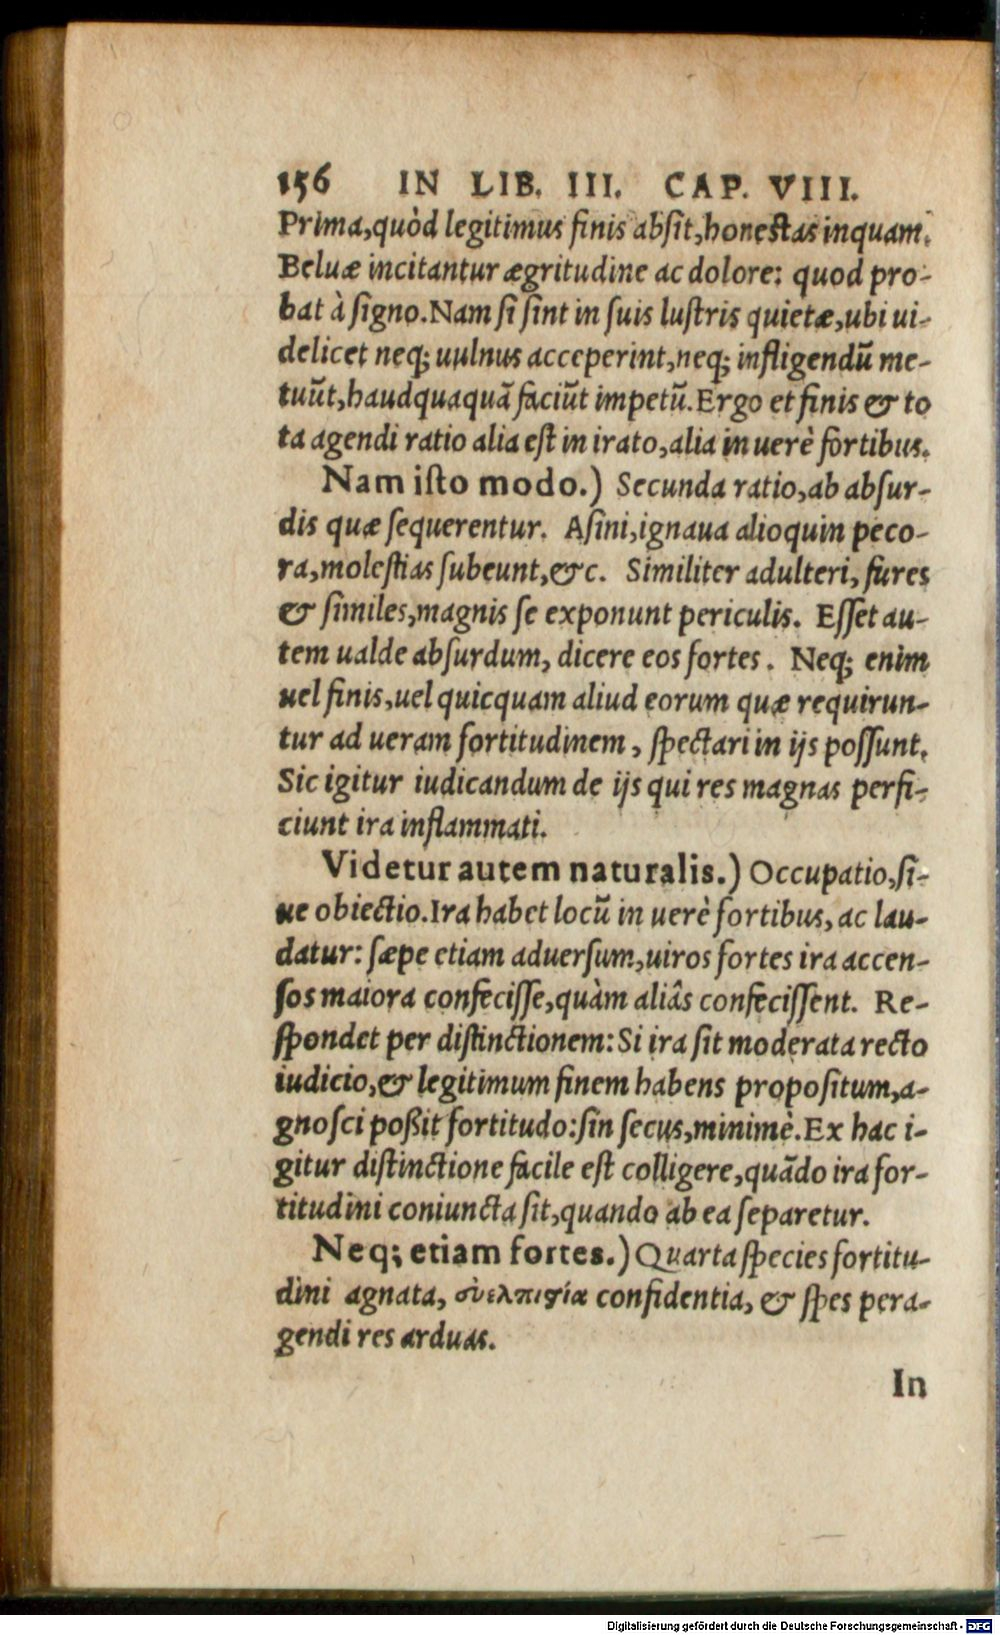 156 IN LIB. III. CAP. VIII.
Prima,quòd legitimus finis absit,honestas inquam.
Beluæ incitantur ægritudine ac dolore: quod pro-
bat à signo.Nam si sint in suis lustris quietæ,ubi ui-
delicet neq; uulnus acceperint,neq; infligendū me-
tuūt,haudquaquā faciūt impetū.Ergo et finis & to
ta agendi ratio alia est in irato,alia in uerè fortibus.
Nam isto modo.) Secunda ratio,ab absur-
dis quæ sequerentur. Asini,ignaua alioquin peco-
ra,molestias subeunt,&c. Similiter adulteri, fures
& similes,magnis se exponunt periculis. Esset au-
tem ualde absurdum, dicere eos fortes. Neq; enim
uel finis,uel quicquam aliud eorum quæ requirun-
tur ad ueram fortitudinem, spectari in ijs possunt.
Sic igitur iudicandum de ijs qui res magnas perfi-
ciunt ira inflammati.
Videtur autem naturalis.) Occupatio,si-
ue obiectio.Ira habet locū in uerè fortibus, ac lau-
datur: sæpe etiam aduersum,uiros fortes ira accen-
sos maiora confecisse,quàm aliâs confecissent. Re-
spondet per distinctionem:Si ira sit moderata recto
iudicio,& legitimum finem habens propositum,a-
gnosci poßit fortitudo:sin secus,minimè.Ex hac i-
gitur distinctione facile est colligere,quādo ira for-
titudini coniuncta sit,quando ab ea separetur.
Neq; etiam fortes.) Quarta species fortitu-
dini agnata, εὐελπιστία confidentia, & spes pera-
gendi res arduas.
In
Digitalisierung gefördert durch die Deutsche Forschungsgemeinschaft - DFG